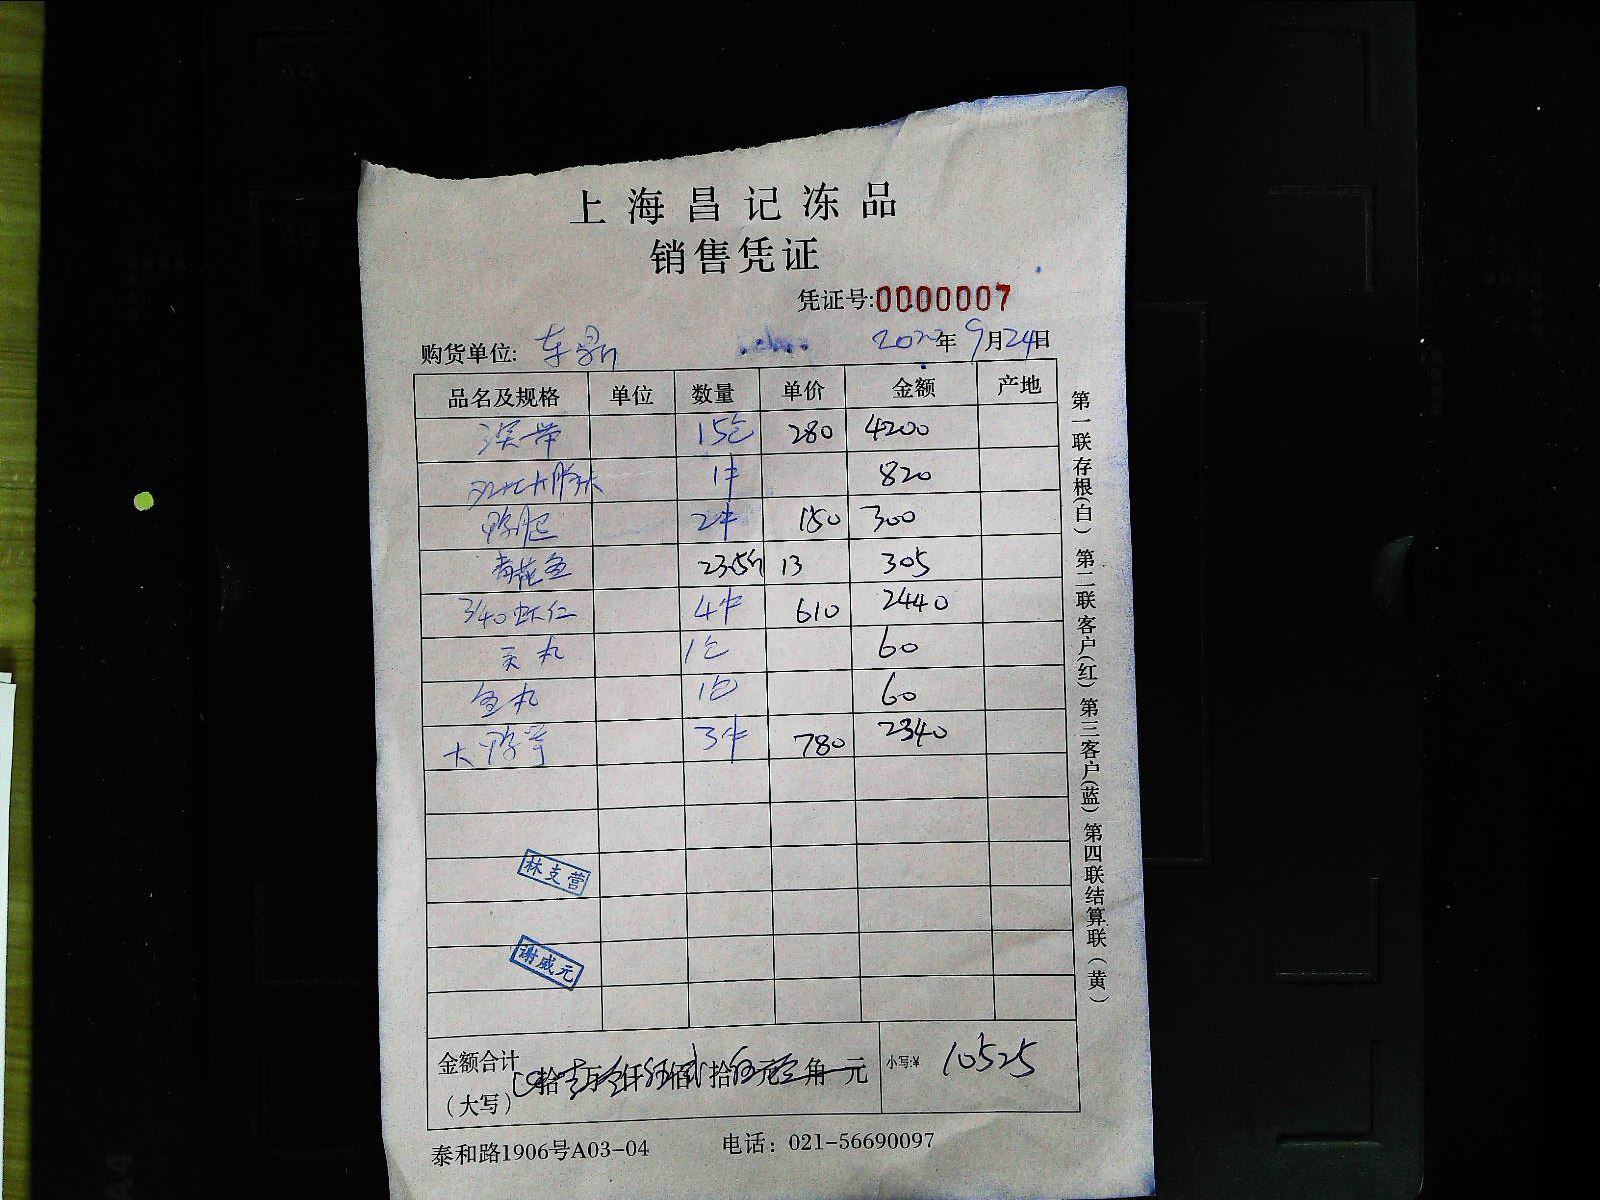 上海昌记冻品
销售凭证
凭证号:0000007
购货单位: 东鼎 2022年9月24日
品名及规格 单位 数量 单价 金额 产地
15包 280 4200
1件 820
鸭肫 2件 150 300
青花鱼 23.5斤 13 305
3/40虾仁 4件 610 2440
贡丸 1包 60
鱼丸 1包 60
大鸭 3件 780 2340
林支营
谢威元
金额合计
(大写) 拾壹万零仟伍佰贰拾伍元零角 元 小写:¥ 10525
泰和路1906号A03-04 电话: 021-56690097
第一联存根(白) 第二联客户(红) 第三客户(蓝) 第四联结算联(黄)